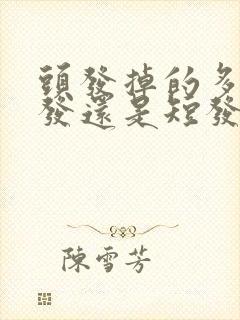 頭發掉的多
發還是短發
陳雪芳